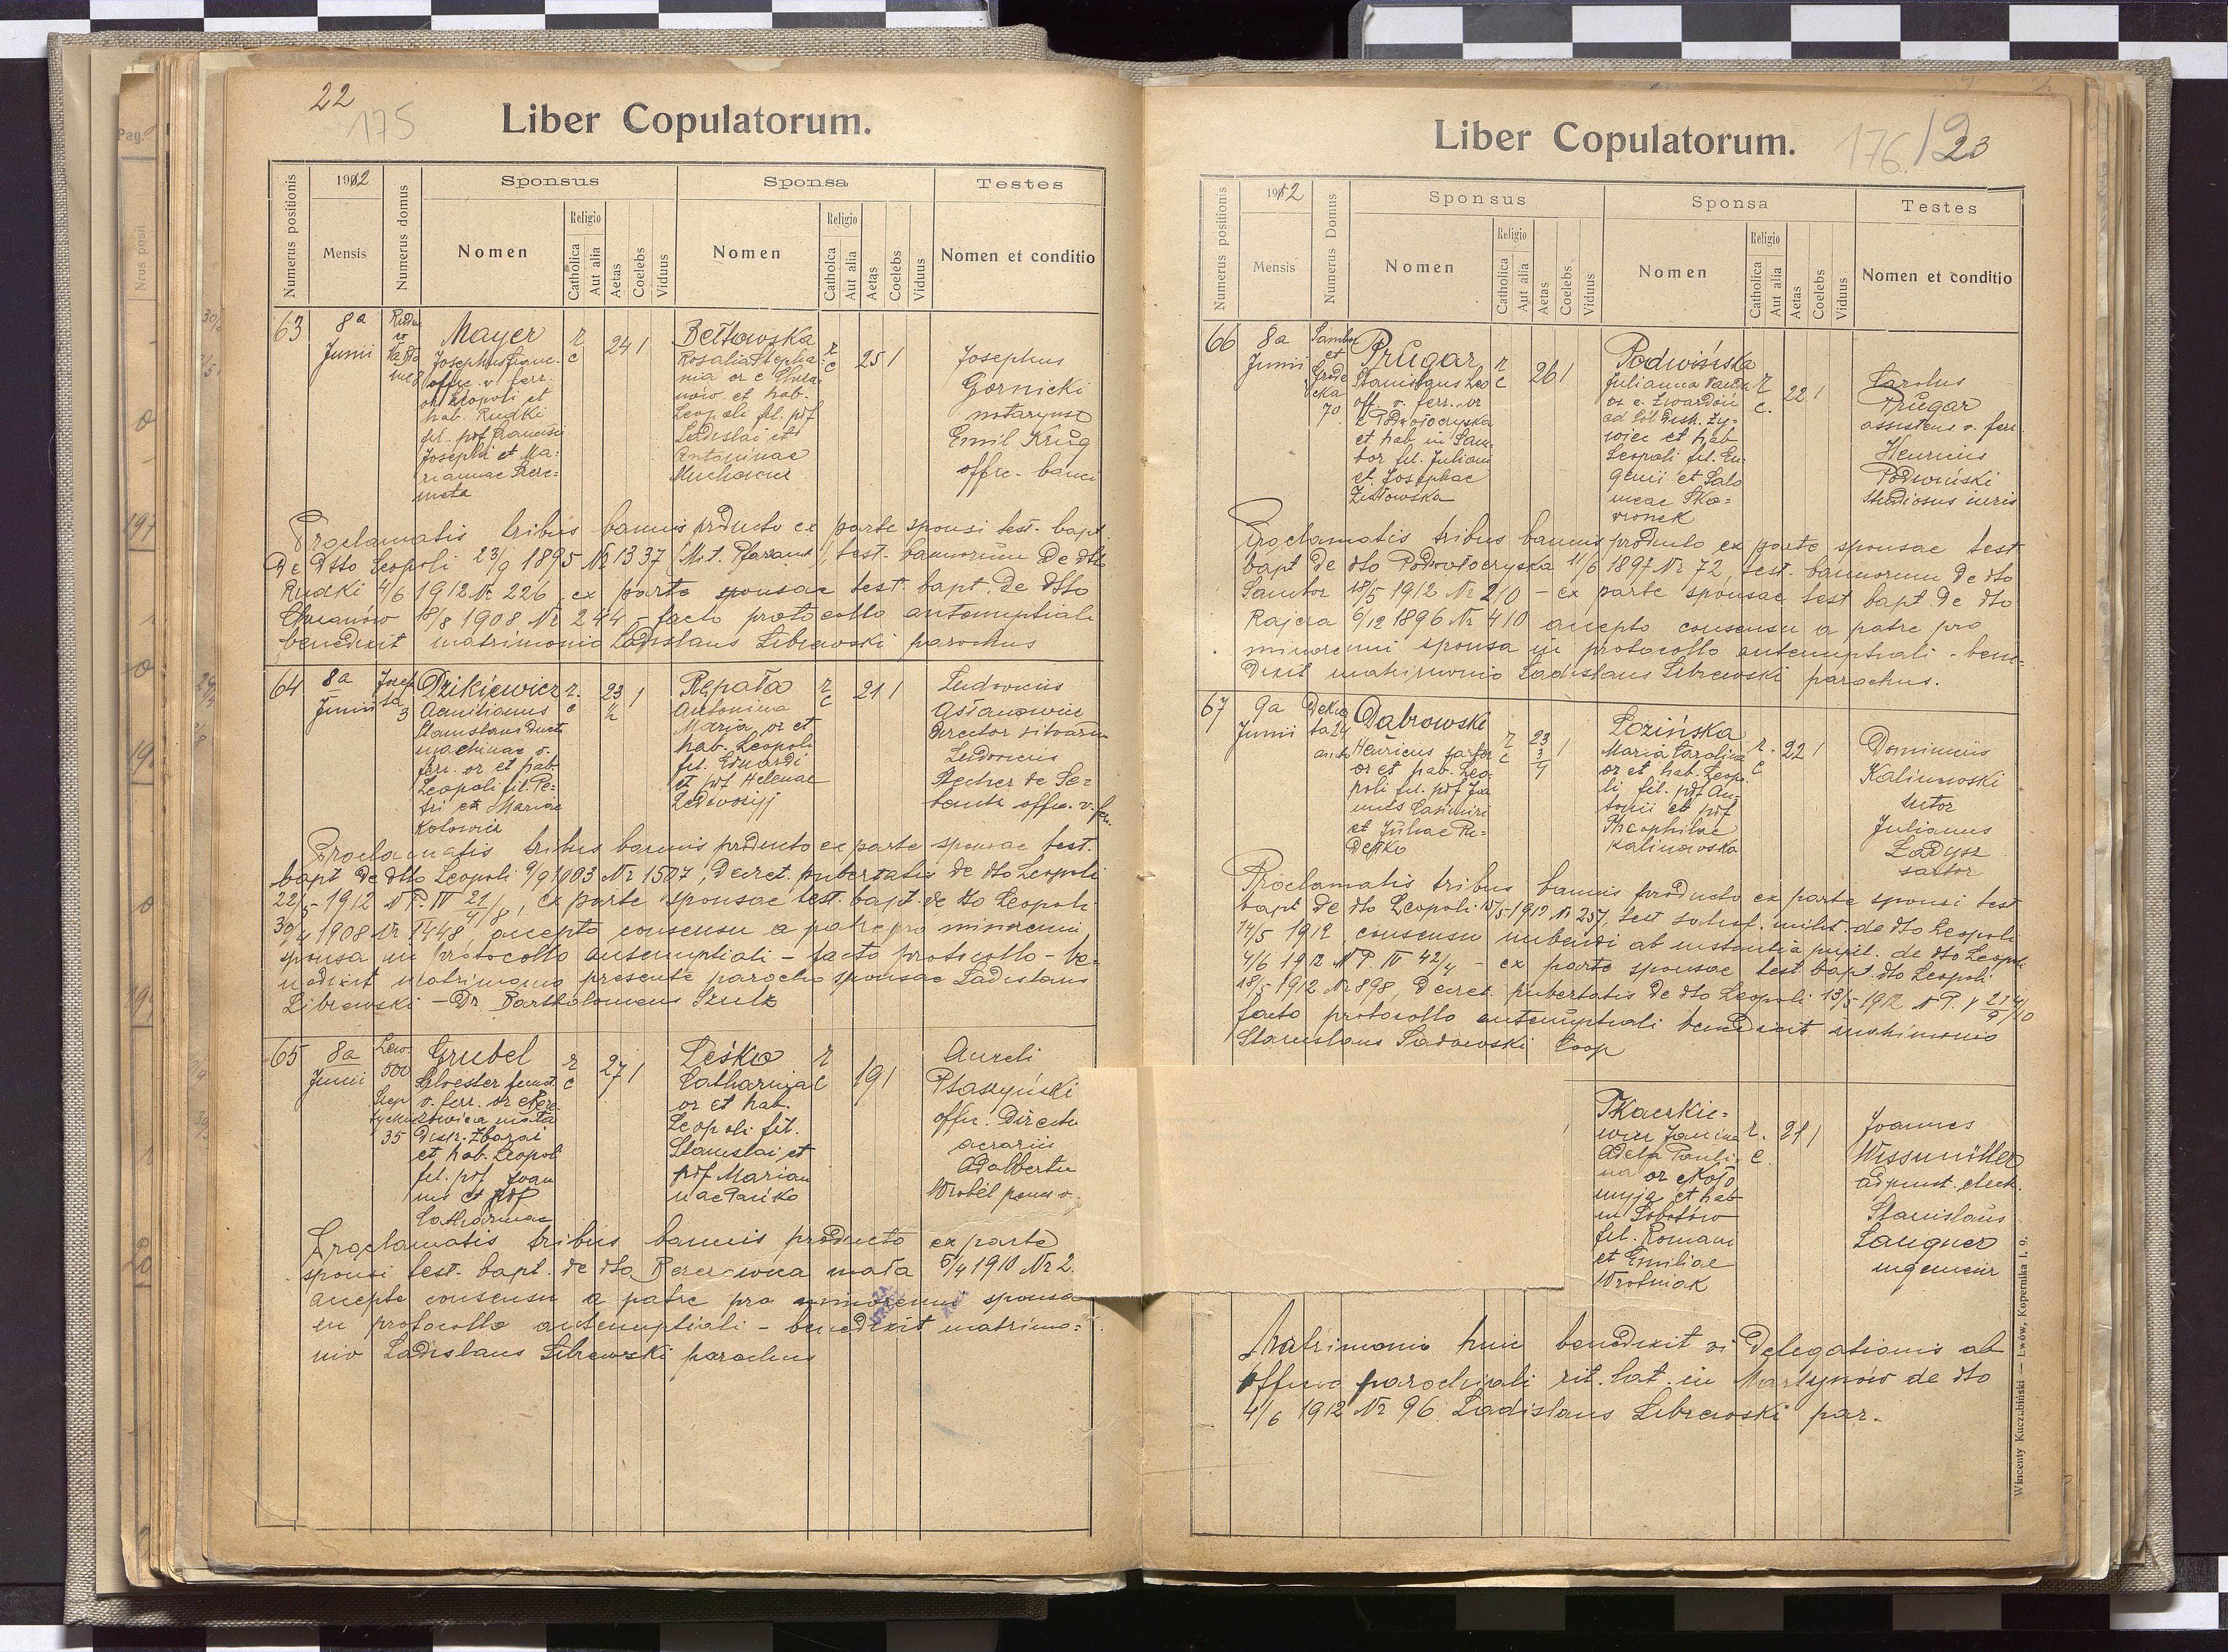 22
175
Liber Copulatorum.
Numerus positionis
1912
Mensis
Numerus domus
Sponsus
Nomen
Religio
Catholica
Aut alia
Aetas
Coelebs
Viduus
Sponsa
Nomen
Religio
Catholica
Aut alia
Aetas
Coelebs
Viduus
Testes
Nomen et conditio
63
8a
Junii
Mayer
Josephus Franc.
offic. v. ferr.
Leopoli et
hab. Rudki
fil. pdf Francisci
Josephi et Ma-
riannae
r
c
24 1
Bełtowska
Rosalia Stepha-
nia or e Chrza-
nów et hab.
Leopoli fil. pdf
Ladislai et
Antoninae
r
c
25 1
Josephus
Górnicki
notaryusz
Emil Krug
offic. banci
Proclamatis tribus bannis producto ex parte sponsi test. bapt.
de dtto Leopoli 23/9 1895 Nr 1337 test. bannorum de dtto
Rudki 4/6 1912 Nr 226, ex parte sponsae test. bapt. de dtto
Chrzanów 18/8 1908 Nr 244, facto protocollo antenuptiali
benedixit matrimonio Ladislaus Librewski parochus
64
8a
Junii
3
Dzikiewicz
Aemilianus
Stanislaus duct.
machinae v.
ferr. or et hab.
Leopoli fil. Pe-
tri et Mariae
r.
c
23 1
½
Rępała
Antonina
Maria or et
hab. Leopoli
fil. Eduardi
et pdf Helenae
r
c
21 1
Ludovicus
director
Ludovicus
offic. v. ferr.
Proclamatis tribus bannis producto ex parte sponsae test.
bapt de dtto Leopoli 9/9 1903 Nr 1507, decret. pubertatis de dto Leopoli
22/5 1912 N P. IV 21/4/8, ex parte sponsae test. bapt. de dto Leopoli
30/4 1908 Nr 1448 accepto consensu a patre pro minorenni
sponsa in protocollo antenuptiali - facto protocollo - be-
nedixit matrimonio presente parocho sponsae Ladislaus
Librewski - Dr Bartholomeus Szulc
65
8a
Junii
500
35
Grubel
Silvester
v. ferr. or e
mała
distr. Zbaraż
et hab. Leopoli
fil. pdf Joan
nis et pdf
Catharinae
r
c
27 1
Leśko
Catharina
or et hab.
Leopoli fil.
Stanislai et
pdf Marian
nae
r
c
19 1
Aureli
Ptaszyński
offic. Direct.
aerarii
Adalbertu
Wrobel
Proclamatis tribus bannis producto ex parte
sponsi test. bapt. de dto mała 5/4 1910 Nr 2.
accepto consensu a patre pro minorenni sponsa
in protocollo antenuptiali - benedixit matrimo-
nio Ladislaus Librewski parochus
176/23
Liber Copulatorum.
Numerus positionis
1912
Mensis
Numerus Domus
Sponsus
Nomen
Religio
Catholica
Aut alia
Aetas
Coelebs
Viduus
Sponsa
Nomen
Religio
Catholica
Aut alia
Aetas
Coelebs
Viduus
Testes
Nomen et conditio
66
8a
Junii
Sambor
et
Grode
cka
70
Prugar
Stanislaus Leo
off. v. ferr. or
e Podwołoczyska
et hab in Sam-
bor fil. Juliani
et Josephae
r
c
26 1
Podwińska
Julianna
or e. Zwardoń
distr. Ży-
wiec et hab
Leopoli fil. Eu-
genii et Salo
meae Sko-
wronek
r
c.
22 1
Carolus
Prugar
assistens v. ferr
Henricus
Podwiński
studiosus iuris
Proclamatis tribus bannis producto ex parte sponsae test
bapt de dto Podwołoczyska 11/6 1897 Nr 72, test. bannorum de dto
Sambor 18/5 1912 Nr 210 - ex parte sponsae test bapt. de dto
Rajcza 6/12 1896 Nr 410 accepto consensu a patre pro
minorenni sponsa in protocollo antenuptiali - bene-
dixit matrimonio Ladislaus Librewski parochus.
67
9a
Junii
Dąbrowski
Henricus sartor
or et hab. Leo-
poli fil. pdf Joa
nnis Casimiri
et Juliae
r
c
23 1
3
4
Łozińska
Maria Carolina
or et hab. Leopo-
li fil. pdf An-
tonii et pdf
Theophilae
Kalinowska
r.
c
22 1
Dominicus
Kalinowski
sutor
Julianus
Ładysz
sartor
Proclamatis tribus bannis producto ex parte sponsi test
bapt de dto Leopoli 15/5 1912 Nr 257, test milit. de dto Leopoli
14/5 1912, consensu nubendi ab instantia pupil. de dto Leopoli
4/6 1912 N P. IV 42/4 - ex parte sponsae test bapt. dto Leopoli
18/5 1912 Nr 898, decret. pubertatis de dto Leopoli 13/5 1912 N P. V
facto protocollo antenuptiali benedixit matrimonio
Stanislaus Sadowski Coop
Tkaczkie-
wicz Janina
Adela Pauli-
na or e Koło
myja et hab
in
fil. Romani
et Emiliae
Woźniak
r.
c.
21 1
Joannes
Wissmüller
adjunct. elect.
Stanislaus
Langner
ingenieur
Matrimonio huic benedixit vi delegationis ab
officio parochiali rit. lat. in Martynów de dto
4/6 1912 Nr 96. Ladislaus Librewski par.
Wincenty Kuczabiński — Lwów, Kopernika l. 9.